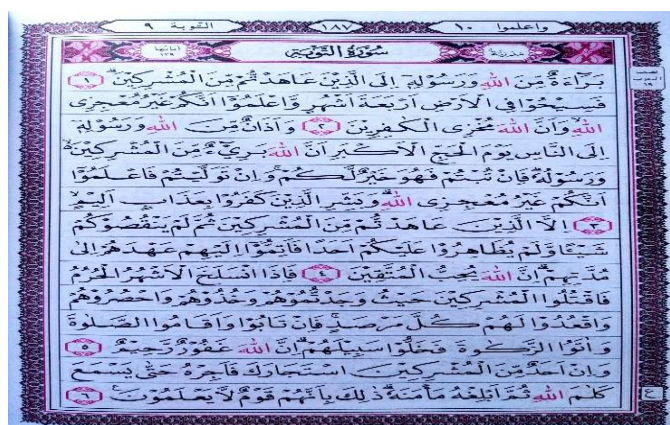 واعلموا ١٠ ١٨٧ التوبة ٩
مدنية سورة التوبة اياتها ١٢٩
بَرَآءَةٌ مِّنَ اللهِ وَرَسُولِهٖٓ اِلَى الَّذِيْنَ عَاهَدْتُّمْ مِّنَ الْمُشْرِكِيْنَ ١
فَسِيْحُوْا فِى الْاَرْضِ اَرْبَعَةَ اَشْهُرٍ وَّاعْلَمُوْٓا اَنَّكُمْ غَيْرُ مُعْجِزِى
اللهِ وَاَنَّ اللهَ مُخْزِى الْكٰفِرِيْنَ ٢ وَاَذَانٌ مِّنَ اللهِ وَرَسُوْلِهٖٓ
اِلَى النَّاسِ يَوْمَ الْحَجِّ الْاَكْبَرِ اَنَّ اللهَ بَرِيْٓءٌ مِّنَ الْمُشْرِكِيْنَ
وَرَسُوْلُهٗ فَاِنْ تُبْتُمْ فَهُوَ خَيْرٌ لَّكُمْ وَاِنْ تَوَلَّيْتُمْ فَاعْلَمُوْٓا
اَنَّكُمْ غَيْرُ مُعْجِزِى اللهِ وَبَشِّرِ الَّذِيْنَ كَفَرُوْا بِعَذَابٍ اَلِيْمٍ
٣ اِلَّا الَّذِيْنَ عَاهَدْتُّمْ مِّنَ الْمُشْرِكِيْنَ ثُمَّ لَمْ يَنْقُصُوْكُمْ
شَيْـًٔا وَّلَمْ يُظَاهِرُوْا عَلَيْكُمْ اَحَدًا فَاَتِمُّوْٓا اِلَيْهِمْ عَهْدَهُمْ اِلٰى
مُدَّتِهِمْ اِنَّ اللهَ يُحِبُّ الْمُتَّقِيْنَ ٤ فَاِذَا انْسَلَخَ الْاَشْهُرُ الْحُرُمُ
فَاقْتُلُوا الْمُشْرِكِيْنَ حَيْثُ وَجَدْتُّمُوْهُمْ وَخُذُوْهُمْ وَاحْصُرُوْهُمْ
وَاقْعُدُوْا لَهُمْ كُلَّ مَرْصَدٍ فَاِنْ تَابُوْا وَاَقَامُوا الصَّلٰوةَ
وَاٰتَوُا الزَّكٰوةَ فَخَلُّوْا سَبِيْلَهُمْ اِنَّ اللهَ غَفُوْرٌ رَّحِيْمٌ ٥
وَاِنْ اَحَدٌ مِّنَ الْمُشْرِكِيْنَ اسْتَجَارَكَ فَاَجِرْهُ حَتّٰى يَسْمَعَ
كَلٰمَ اللهِ ثُمَّ اَبْلِغْهُ مَأْمَنَهٗ ذٰلِكَ بِاَنَّهُمْ قَوْمٌ لَّا يَعْلَمُوْنَ ٦
ع